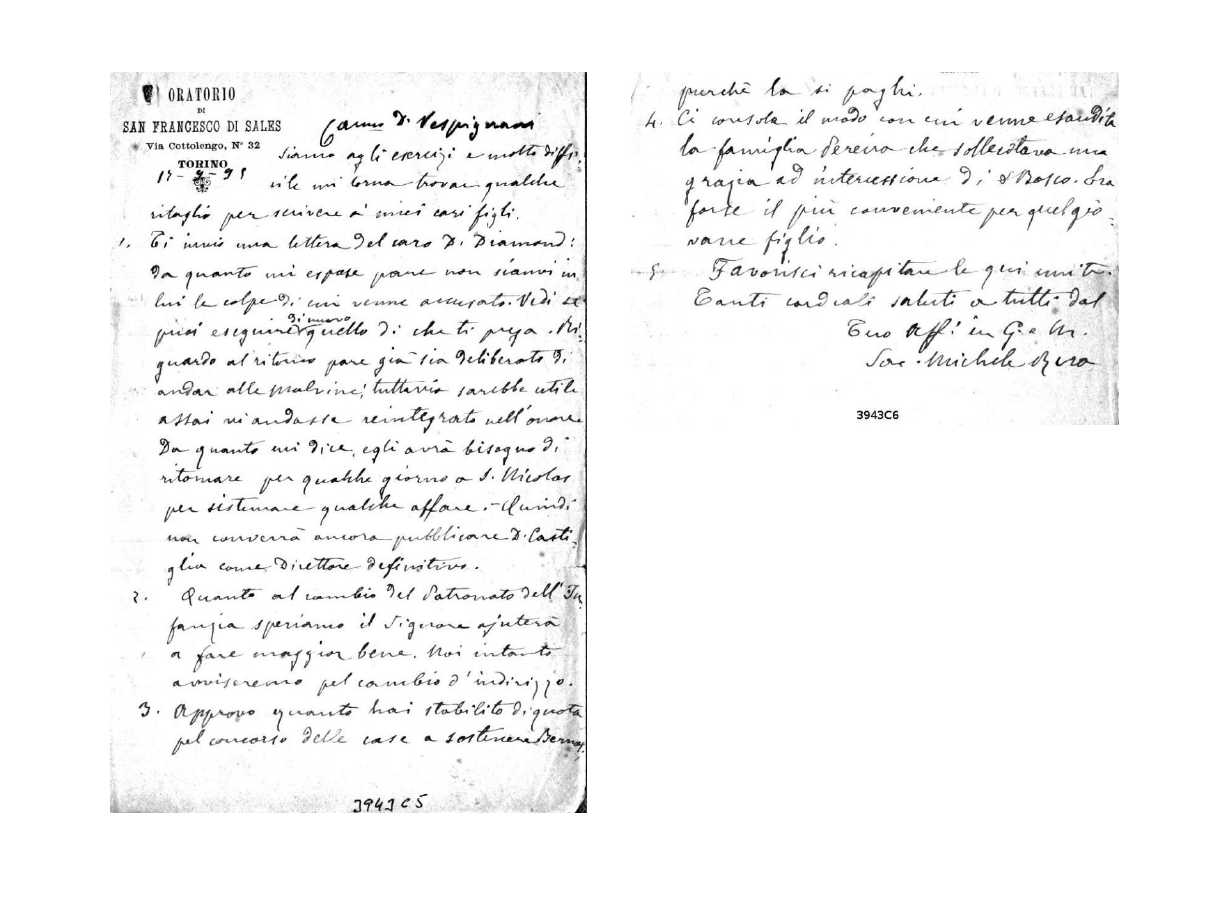 ORATORIO
DI
SAN FRANCESCO DI SALES
Via Cottolengo, N° 32
TORINO
Carmo D. Vespignani
siamo agli esercizi e molto diffi-
cile mi torna trovar qualche
ritaglio per scrivere a' miei cari figli.
1. Ti invio una lettera del caro D. Diamond:
da quanto mi espose pare non sianvi in
lui le colpe di cui venne accusato. Vedi se
puoi eseguire di nuovo quello di che ti prega. Ri-
guardo al ritorno pare già sia deliberato di
andar alle Malvine; tuttavia sarebbe utile
assai vi andasse reintegrato nell'onore
Da quanto mi dice, egli avrà bisogno di
ritornare per qualche giorno a S. Nicolas
per sistemare qualche affare. - Quindi
non converrà ancora pubblicare D. Casti-
glia come Direttore definitivo.
2. Quanto al cambio del Patronato dell'In-
fanzia speriamo il Signore ajuterà
a fare maggior bene. Noi intanto
avviseremo pel cambio d'indirizzo.
3. Approvo quanto hai stabilito di quota
pel concorso delle case a sostenere Bernal,
3943C5
purchè la si paghi.
4. Ci consola il modo con cui venne esaudita
la famiglia Pereira che sollecitava una
grazia ad intercessione di D Bosco. Era
forse il più conveniente per quel gio-
vane figlio.
5. Favorisci ricapitare le qui unite.
Tanti cordiali saluti a tutti dal
Tuo Aff. in G. e M.
Sac. Michele Rua
3943C6